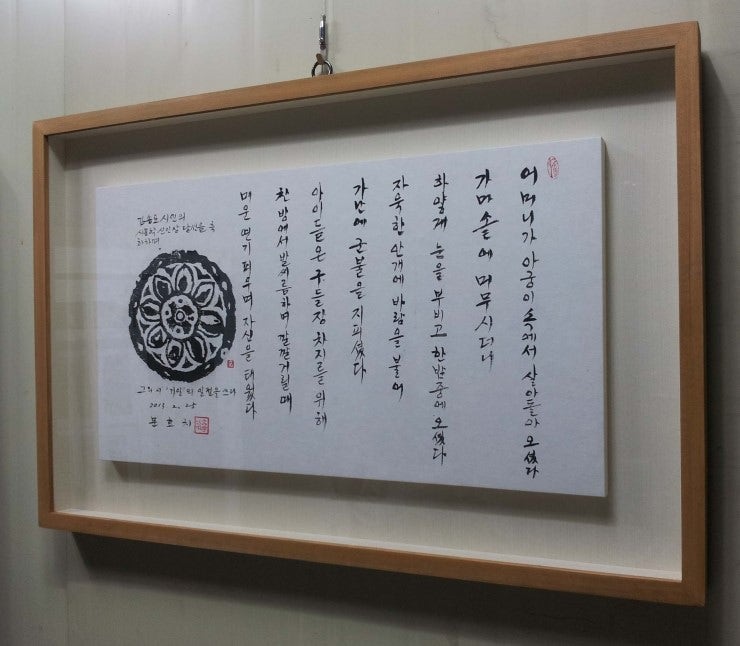 어머니가 아궁이 속에서 살아돌아 오셨다
가마솥에 머무시더니
하얗게 눈을 부비고 한밤중에 오셨다
자욱한 안개에 바람을 불어
가난에 군불을 지피셨다
아이들은 구들장 차지를 위해
찬 방에서 발씨름하며 깔깔거릴 때
매운 연기 피우며 자신을 태웠다
김송포 시인의
시문학 신인상 당선을 축
하하며
그의 시 '기일'의 일절을 쓰다
2013. 2. 25
문 효 치